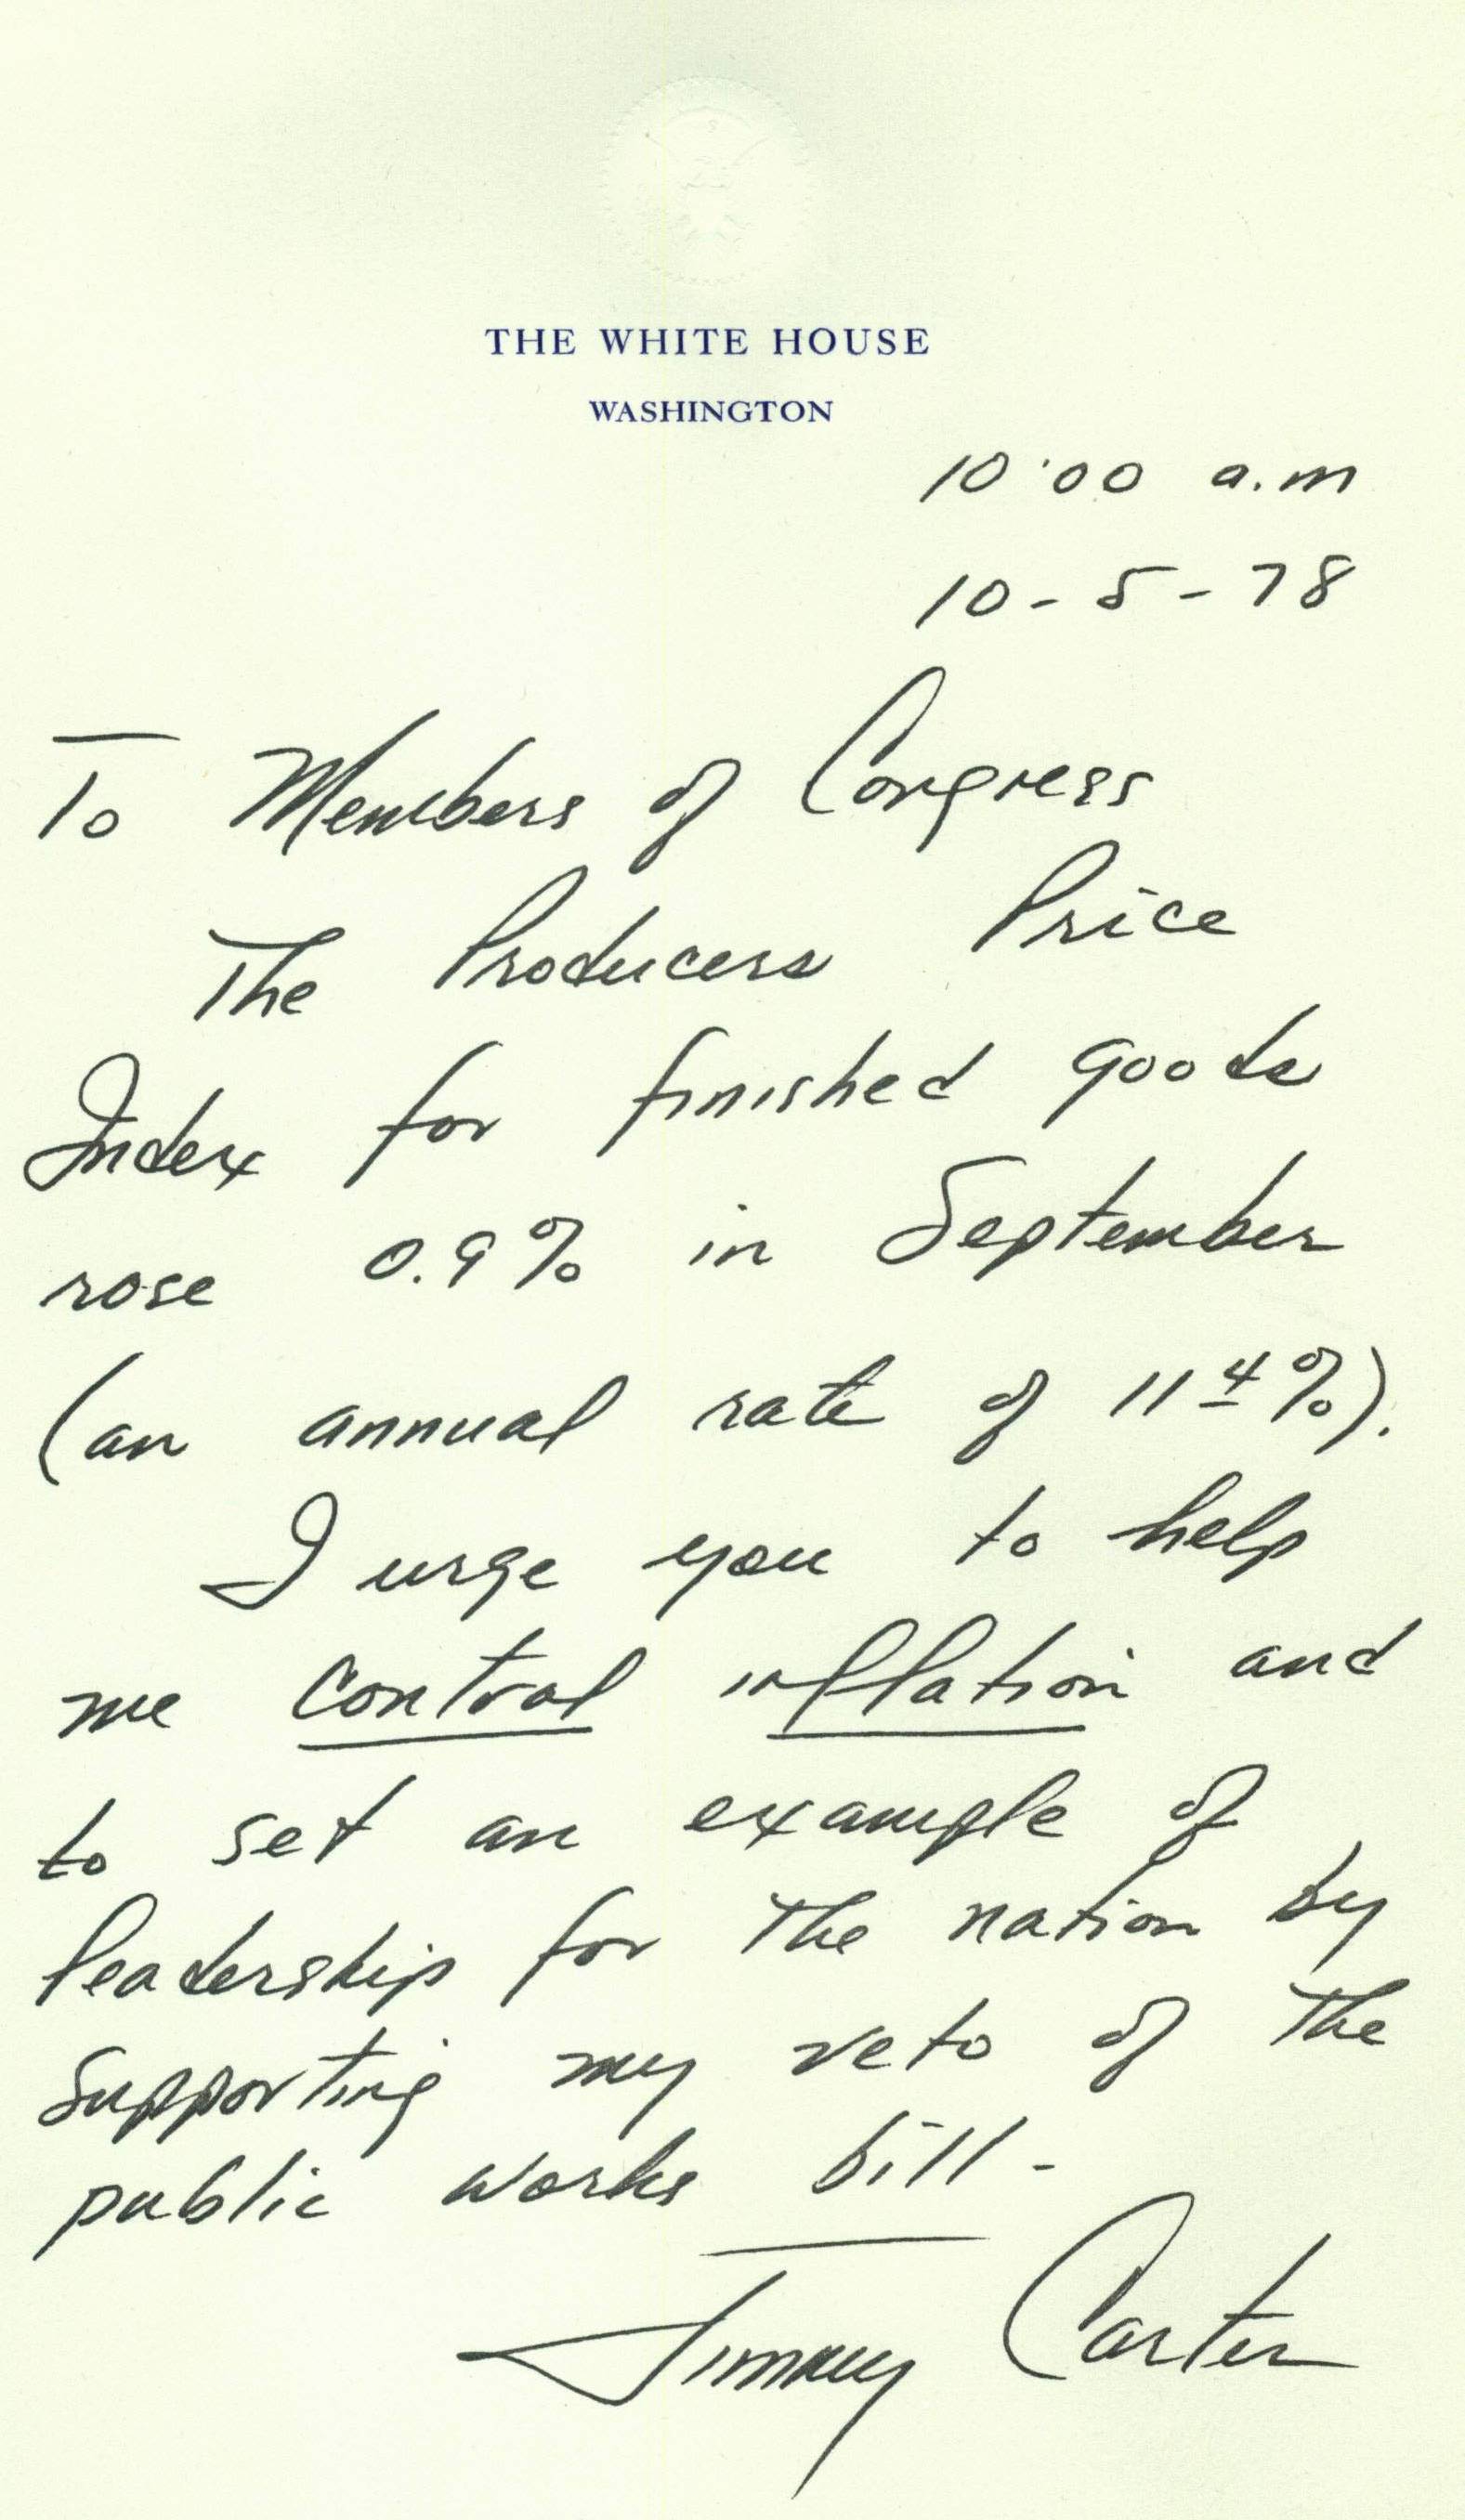 THE WHITE HOUSE
WASHINGTON
10:00 a.m
10-5-78
To Members of Congress
The Producers Price
Index for finished goods
rose 0.9% in September
(an annual rate of 11 4%).
I urge you to help
me control inflation and
to set an example of
leadership for the nation by
supporting my veto of the
public works bill -
Jimmy Carter